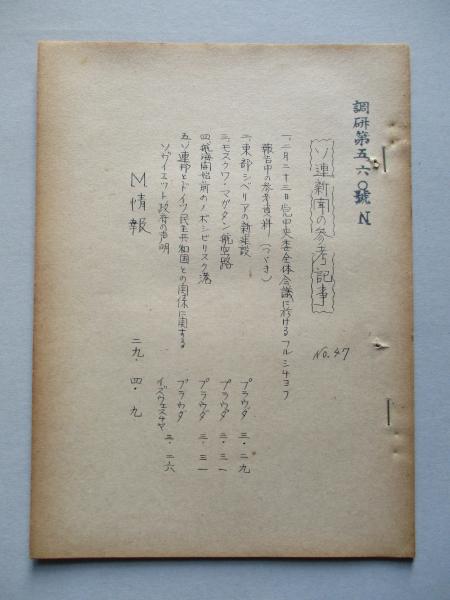 調研第五六〇號 N
ソ連新聞の参考記事
No. 47
一、二月二十三日党中央委全体会議に於けるフルシチョフ
報告中の参考資料(つゞき) プラウダ 三・二九
二、東部シベリアの新建設 プラウダ 三・三一
三、モスクワ・マガダン航空路 プラウダ 三・三一
四、航海開始前のノボシビリスク港
五、ソ連邦とドイツ民主共和国との関係に関する
ソヴィエット政府の声明 イズヴェスチヤ 三・二六
M情報
二九・四・九